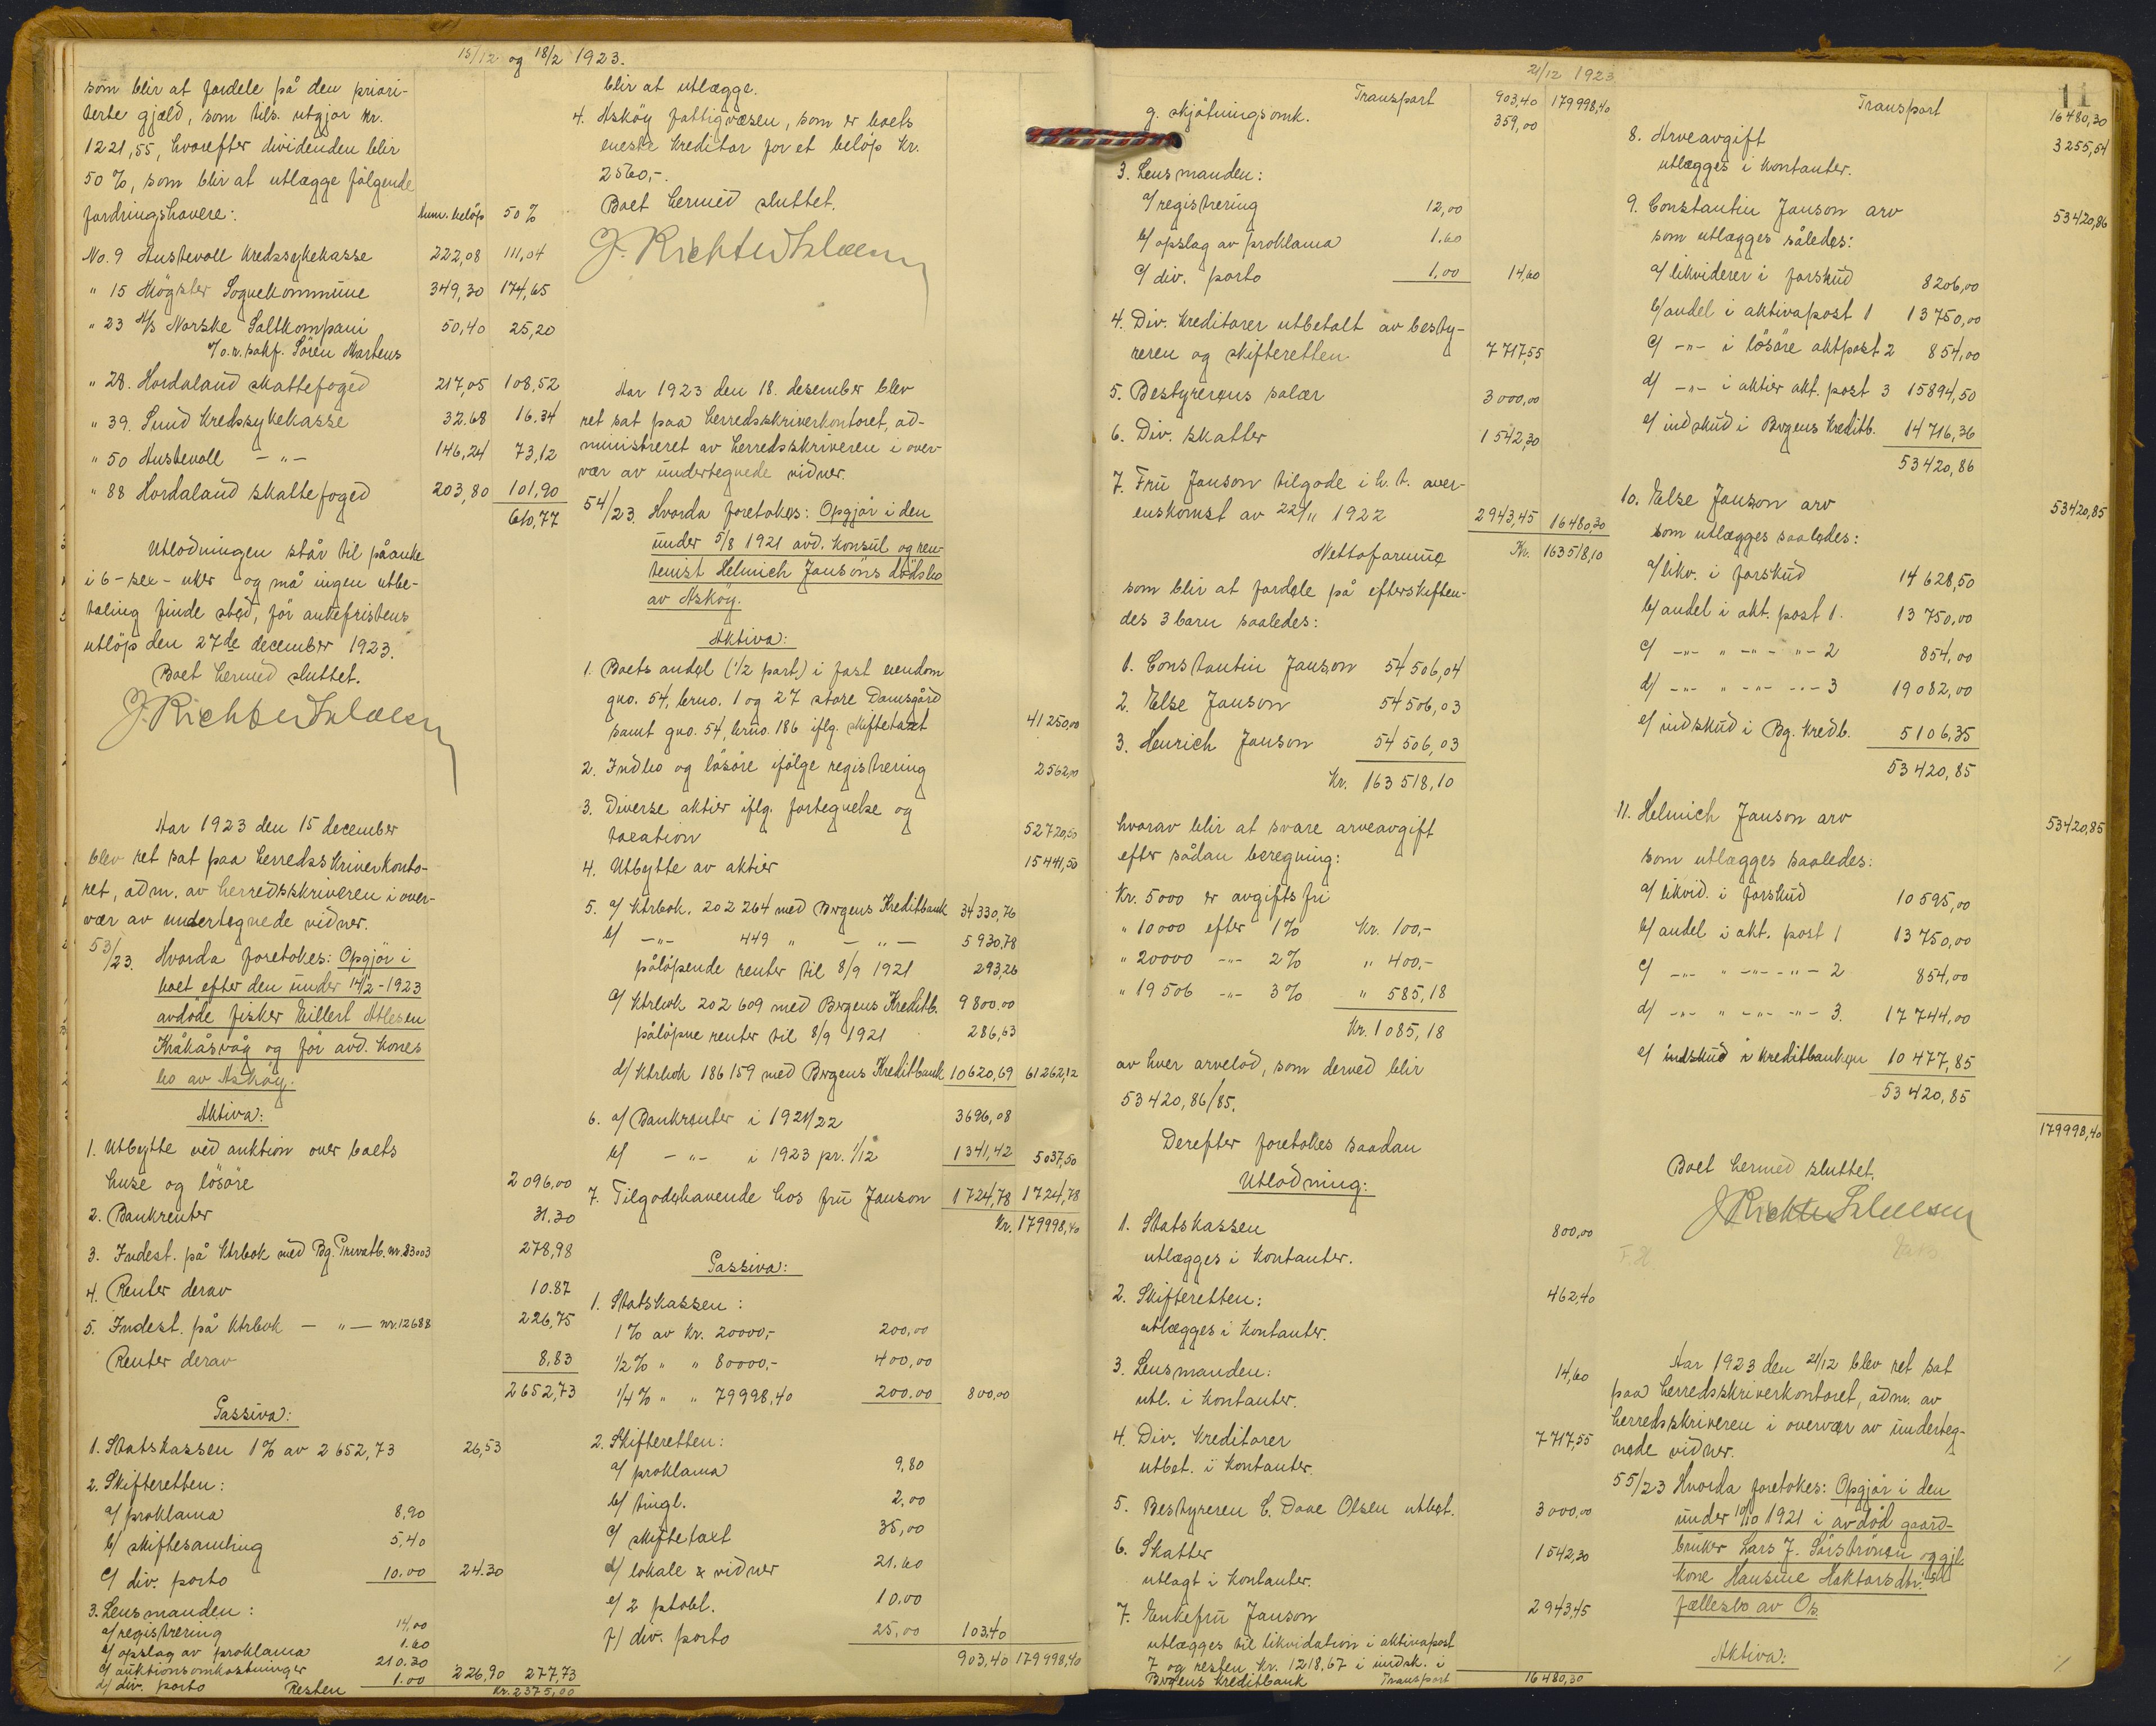 15/12 og 18/2 1923.
som blir at fordele på den priori-
terte gjæld, som tils. utgjør kr.
1221,55, hvorefter dividenden blir
50 %, som blir at utlægge følgende
fordringshavere: Anm. beløp 50 %
No. 9 Austevoll kredssykekasse 222,08 111,04
" 15 Møgster Sognekommune 349,30 174,65
" 23 A/S Norske Saltkompani 50,40 25,20
v/ o.r.sakf. Sören Martens
" 28. Hordaland skattefoged 217,05 108,52
" 39. Sund kredssykekasse 32.68 16.34
" 50 Austevoll - " - 146,24 73,12
" 88 Hordaland skattefoged 203,80 101,90
610,77
Utlodningen står til påanke
i 6 - sex - uker og må ingen utbe-
taling finde sted, før ankefristens
utløp den 27de december 1923.
Boet hermed sluttet.
Aar 1923 den 15 december
blev ret sat paa herredsskriverkonto-
ret, adm. av herredsskriveren i over-
vær av undertegnede vidner.
53/23. Hvorda foretokes: Opgjør i
boet efter den under 14/2 - 1923
avdøde fisker Eillert Atlesen
Kråkåsvåg og før avd. kones
bo av Askøy.
Aktiva:
1. Utbytte ved auktion over boets
huse og løsøre 2096,00
2. Bankrenter 31.30
3. Indest. på ktrbok med Bg. Privatb. nr. 83003 278,98
4. Renter derav 10.87
5. Indest. på ktrbok - " - nr. 12688 226,75
Renter derav 8,83
2652,73
Passiva:
1. Statskassen 1% av 2652,73 26,53
2. Skifteretten:
a/ proklama 8,90
b/ skiftesamling 5,40
c/ div. porto 10.00 24.30
3. Lensmanden:
a/ registrering 14,00
b/ opslag av proklama 1.60
c/ auktionsomkostninger 210.30
d/ div. porto 1.00 226,90 277,73
Resten kr. 2375,00
blir at utlægge.
4. Askøy fattigvæsen, som er boets
eneste kreditor for et beløp kr.
2560,-.
Boet hermed sluttet.
Aar 1923 den 18. desember blev
ret sat paa herredsskriverkontoret, ad-
ministreret av herredsskriveren i over-
vær av undertegnede vidner.
54/23. Hvorda foretokes: Opgjør i den
under 5/8 1921 avd. konsul og ren-
tenist Helmich Jansons dødsbo
av Askøy.
Aktiva:
1. Boets andel (1/2 part) i fast eiendom
gno. 54, brno. 1 og 27 store Damsgård
samt gno. 54, brno. 186 iflg. skiftetaxt 41250,00
2. Indbo og løsøre ifølge registrering 2562,00
3. Diverse aktier iflg. fortegnelse og
taxation 52720,50
4. Utbytte av aktier 15441,50
5. a/ Ktrbok. 202264 med Brgens Kreditbank 34330,76
b/ -"- 449 " - " - 5930.78
påløpende renter til 8/9 1921 293,26
c/ Ktrbok 202609 med Brgens Kreditb. 9800.00
påløpne renter til 8/9 1921 286,63
d/ Ktrbok 186159 med Brgens Kreditbank 10620,69 61262,12
6. a/ Bankrenter i 1921/22 3696,08
b/ - " - i 1923 pr. 1/12 1341,42 5037,50
7. Tilgodehavende hos fru Janson 1724,78 1724,78
Kr. 179998,40
Passiva:
1. Statskassen:
1% av kr. 20000,- 200,00
1/2 % " " 80000,- 400,00
1/4 % " " 79998,40 200.00 800,00
2. Skifteretten:
a/ proklama 9,80
b/ tingl. 2.00
c/ skiftetaxt 35,00
d/ lokale & vidner 21.60
e/ 2 pkobl. 10.00
f/ div. porto 25,00 103.40
903,40 179998,40
21/12 1923
11
Transport 903,40 179998,40
g. skjøtningsomk. 359,00
3. Lensmanden:
a/ registrering 12,00
b/ opslag av proklama 1.60
c/ div. porto 1,00 14,60
4. Div. kreditorer utbetalt av besty-
reren og skifteretten 7717,55
5. Bestyrerens salær 3000,00
6. Div. skatter 1542,30
7. Fru Janson tilgode i h.t. over-
enskomst av 22/11 1922 2943,45 16480,30
Nettoformue Kr. 163518,10
som blir at fordele på efterskiften-
des 3 barn saaledes:
1. Constantin Janson 54506,04
2. Else Janson 54506,03
3. Henrich Janson 54506,03
Kr. 163518,10
hvorav blir at svare arveavgift
efter sådan beregning:
Kr. 5000 er avgiftsfri
" 10000 efter 1% Kr. 100,-
" 20000 -"- 2% " 400,-
" 19506 -"- 3% " 585,18
Kr. 1085,18
av hver arvelod, som derved blir
53420,86/85.
Derefter foretokes saadan
Utlodning:
1. Statskassen 800,00
utlægges i kontanter.
2. Skifteretten: 462,40
utlægges i kontanter.
3. Lensmanden: 14,60
utl. i kontanter.
4. Div. kreditorer 7717,55
utbet. i kontanter.
5. Bestyreren C. Daae Olsen utbet. 3000,00
6. Skatter 1542,30
utlagt i kontanter.
7. Enkefru Janson 2943,45
utlægges til likvidation i aktivapost
7 og resten kr. 1218.67 i indsk. i
Brgens Kreditbank Transport 16480,30
Transport 16480,30
8. Arveavgift 3255,54
utlægges i kontanter.
9. Constantin Janson arv 53420,86
som utlægges således:
a/ likviderer i forskud 8206,00
b/ andel i aktivapost 1 13750,00
c/ -"- i løsøre aktpost 2 854,00
d/ -"- i aktier akt. post 3 15894,50
e/ indskud i Brgens Kreditb. 14716,36
53420,86
10. Else Janson arv 53420,85
som utlægges saaledes:
a/ likv. i forskud 14628,50
b/ andel i akt. post 1. 13750,00
c/ -"- " -"- -"- 2 854,00
d/ -"- " -"- -"- 3 19082,00
e/ indskud i Bg. kredb. 5106,35
53420,85
11. Helmich Janson arv 53420,85
som utlægges saaledes:
a/ likvid. i forskud 10595,00
b/ andel i akt. post 1 13750,00
c/ -"- " -"- -"- 2 854,00
d/ -"- " -"- -"- 3. 17744,00
e/ indskud i kreditbanken 10477,85
53420,85
179998,40
Boet hermed sluttet.
F. H.
Aar 1923 den 21/12 blev ret sat
paa herredsskriverkontoret, adm. av
herredsskriveren i overvær av underteg-
nede vidner.
55/23 Hvorda foretokes: Opgjør i den
under 10/10 1921 i avdød gaard-
bruker Lars J. Sørstrønen og gjl.
kone Hansine Haktorsdtr.
fællesbo av Os.
Aktiva: